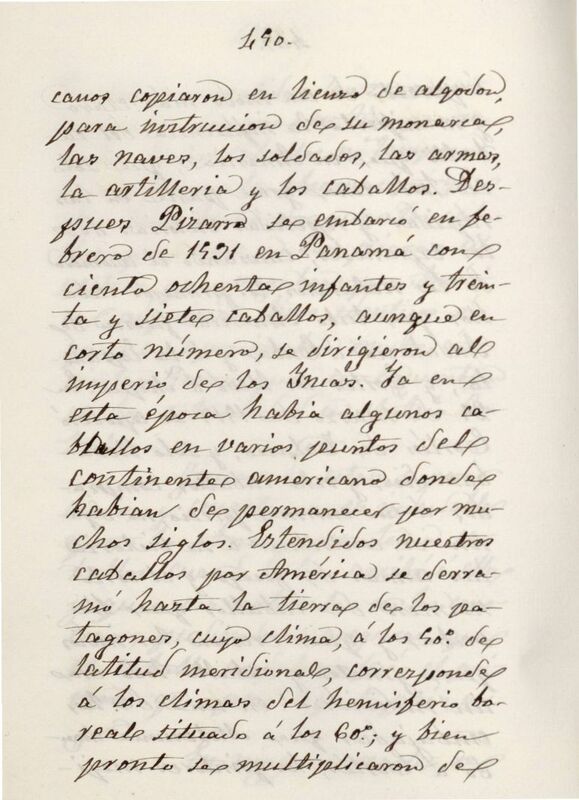 490.
canos copiaron en lienzo de algodon,
para instruccion de su monarca,
las naves, los soldados, las armas,
la artilleria y los caballos. Des-
pues Pizarro se embarcó en fe-
brero de 1531 en Panamá con
ciento ochenta infantes y trein-
ta y siete caballos, aunque en
corto número, se dirigieron al
imperio de los Incas. Ya en
esta época habia algunos ca-
ballos en varios puntos del
continente americano donde
habian de permanecer por mu-
chos siglos. Estendidos nuestros
caballos por América se derra-
mó hasta la tierra de los pa-
tagones, cuyo clima, á los 50º. de
latitud meridional, corresponde
á los climas del hemisferio bo-
real situado á los 60º.; y bien
pronto se multiplicaron de